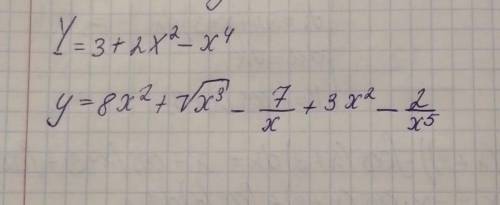 Y = 3 + 2x² - x⁴
y = 8x² + √x³ - 7/x + 3x² - 2/x⁵